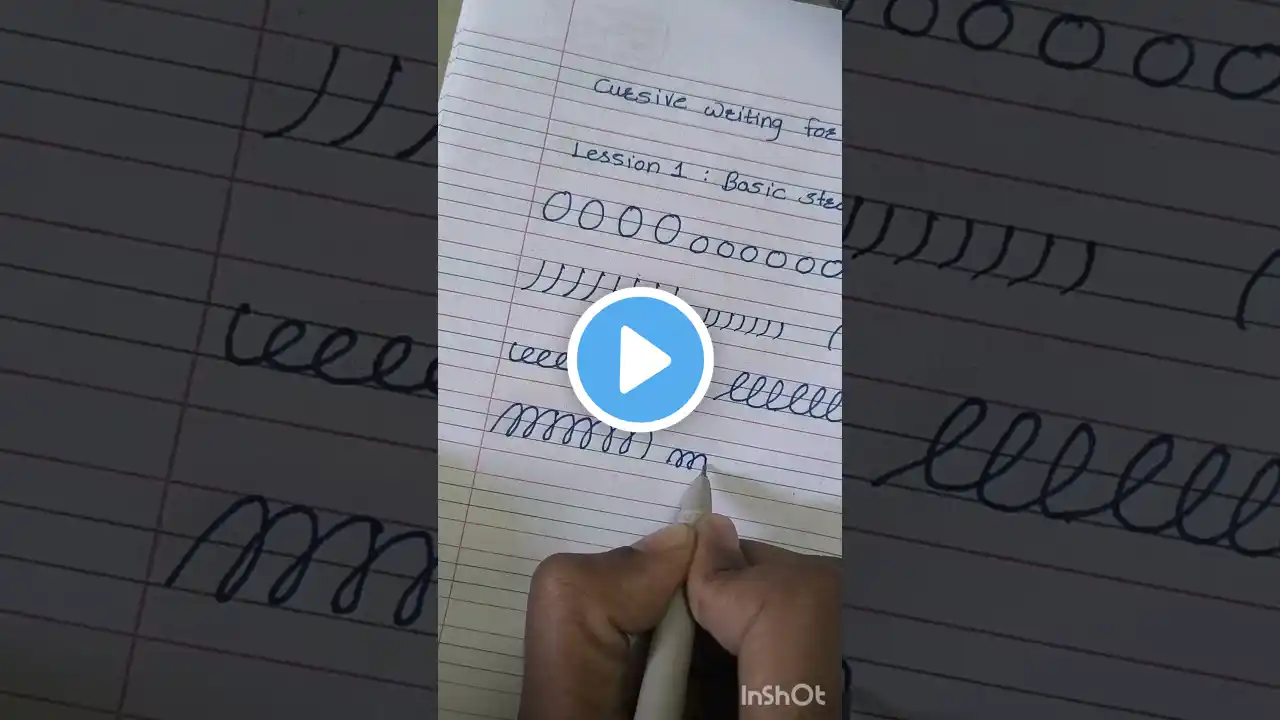 Cursive writing for
Lession 1 : Basic
InShOt